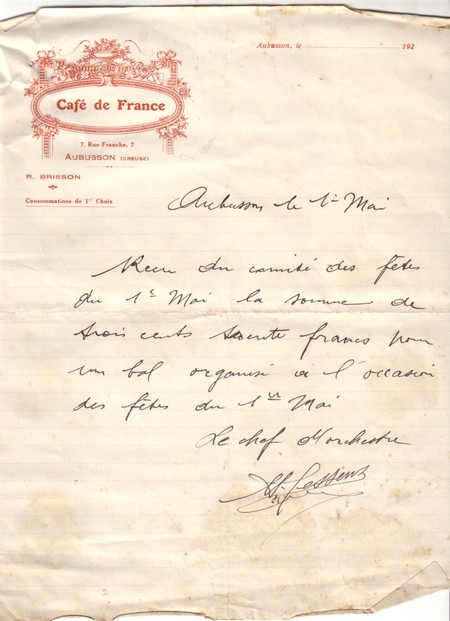 Aubusson, le 192
Café de France
7, Rue Franche, 7
AUBUSSON (CREUSE)
R. BRISSON
Consommations de 1er Choix
Aubusson le 1er Mai
Recu du comité des fêtes
du 1er Mai la somme de
trois cents francs pour
un bal organisé à l'occasion
des fêtes du 1er Mai
Le chef d'orchestre